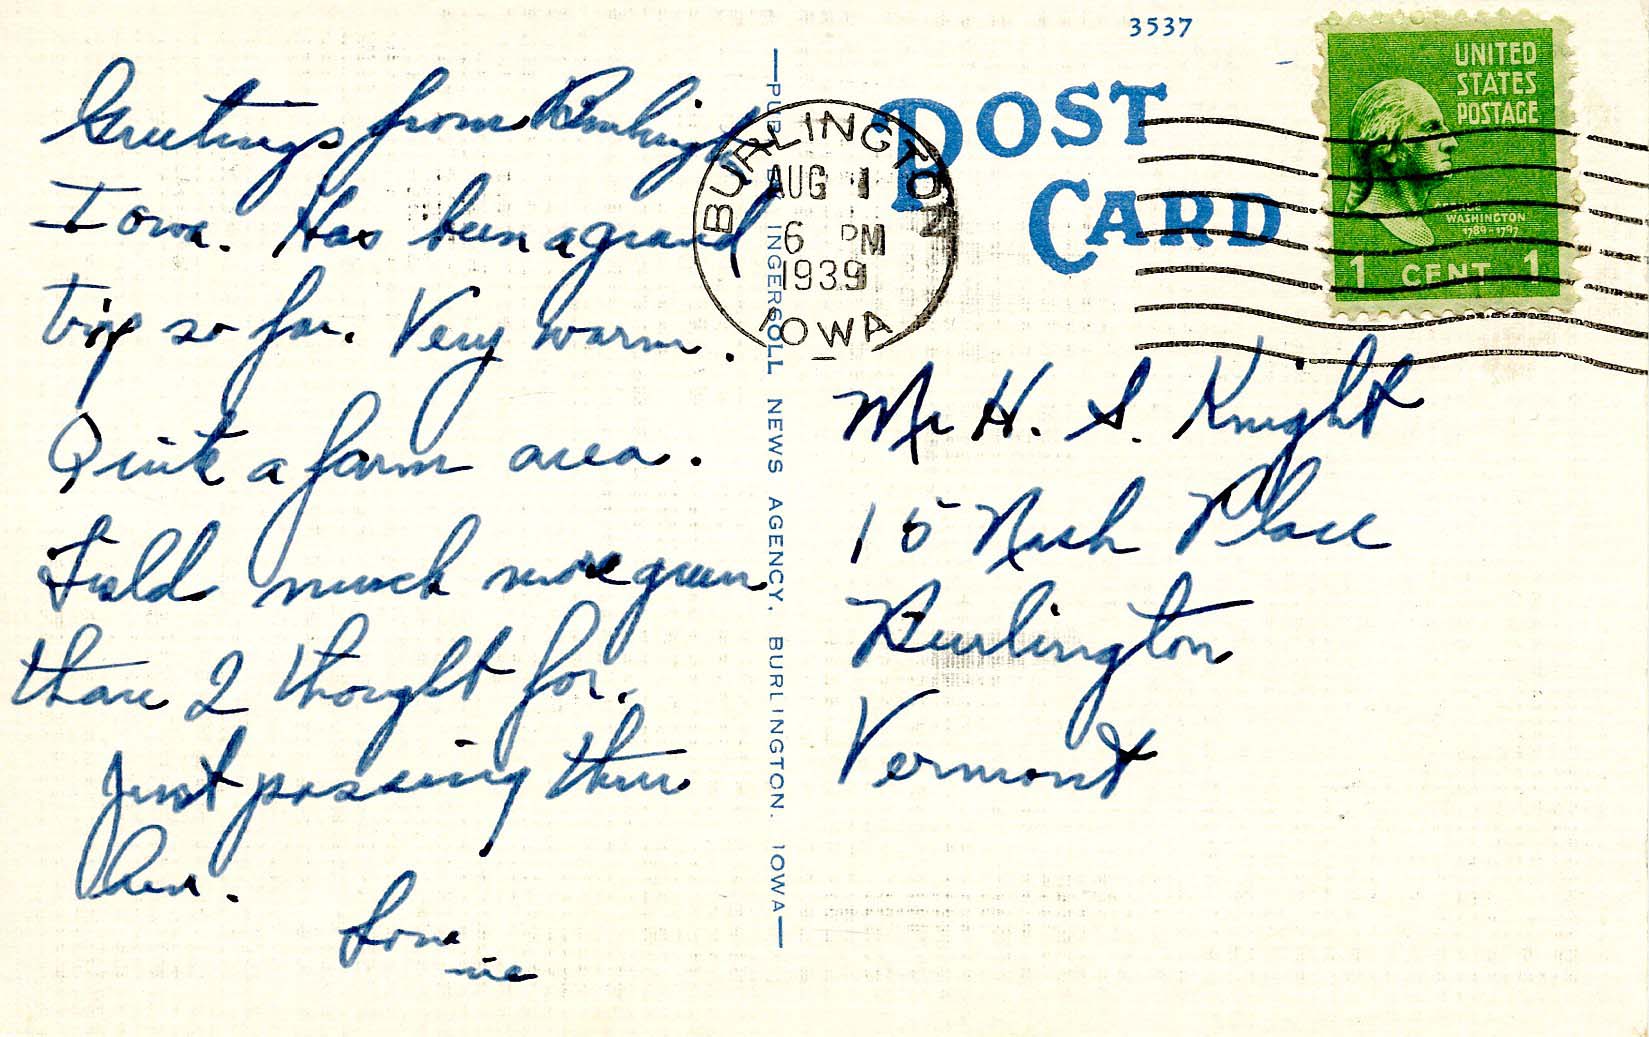 3537
POST
CARD
UNITED
STATES
POSTAGE
WASHINGTON
1789-1797
1 CENT 1
BURLINGTON
AUG 1
6 PM
1939
IOWA
Greetings from Burlington
Iowa. Has been a grand
trip so far. Very warm.
Quite a farm area.
Field much more green
than I thought for.
Just passing thru
here.
INGERSOLL NEWS AGENCY, BURLINGTON, IOWA
Mr H. S. Knight
15 Nash Place
Burlington
Vermont